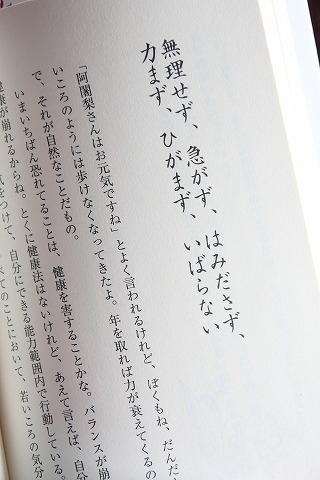 無理せず、急がず、はみださず、
力まず、ひがまず、いばらない
「阿闍梨さんはお元気ですね」とよく言われるけれど、ぼくもね、だんだん
いころのようには歩けなくなってきたよ。年を取れば力が衰えてくるの
で、それが自然なことだもの。
いまいちばん恐れてることは、健康を害することかな。バランスが崩
健康が崩れるからね。とくに健康法はないけれど、あえて言えば、自分
気をつけて、自分にできる能力範囲内で行動している。
べてのことにおいて、若いころの気分